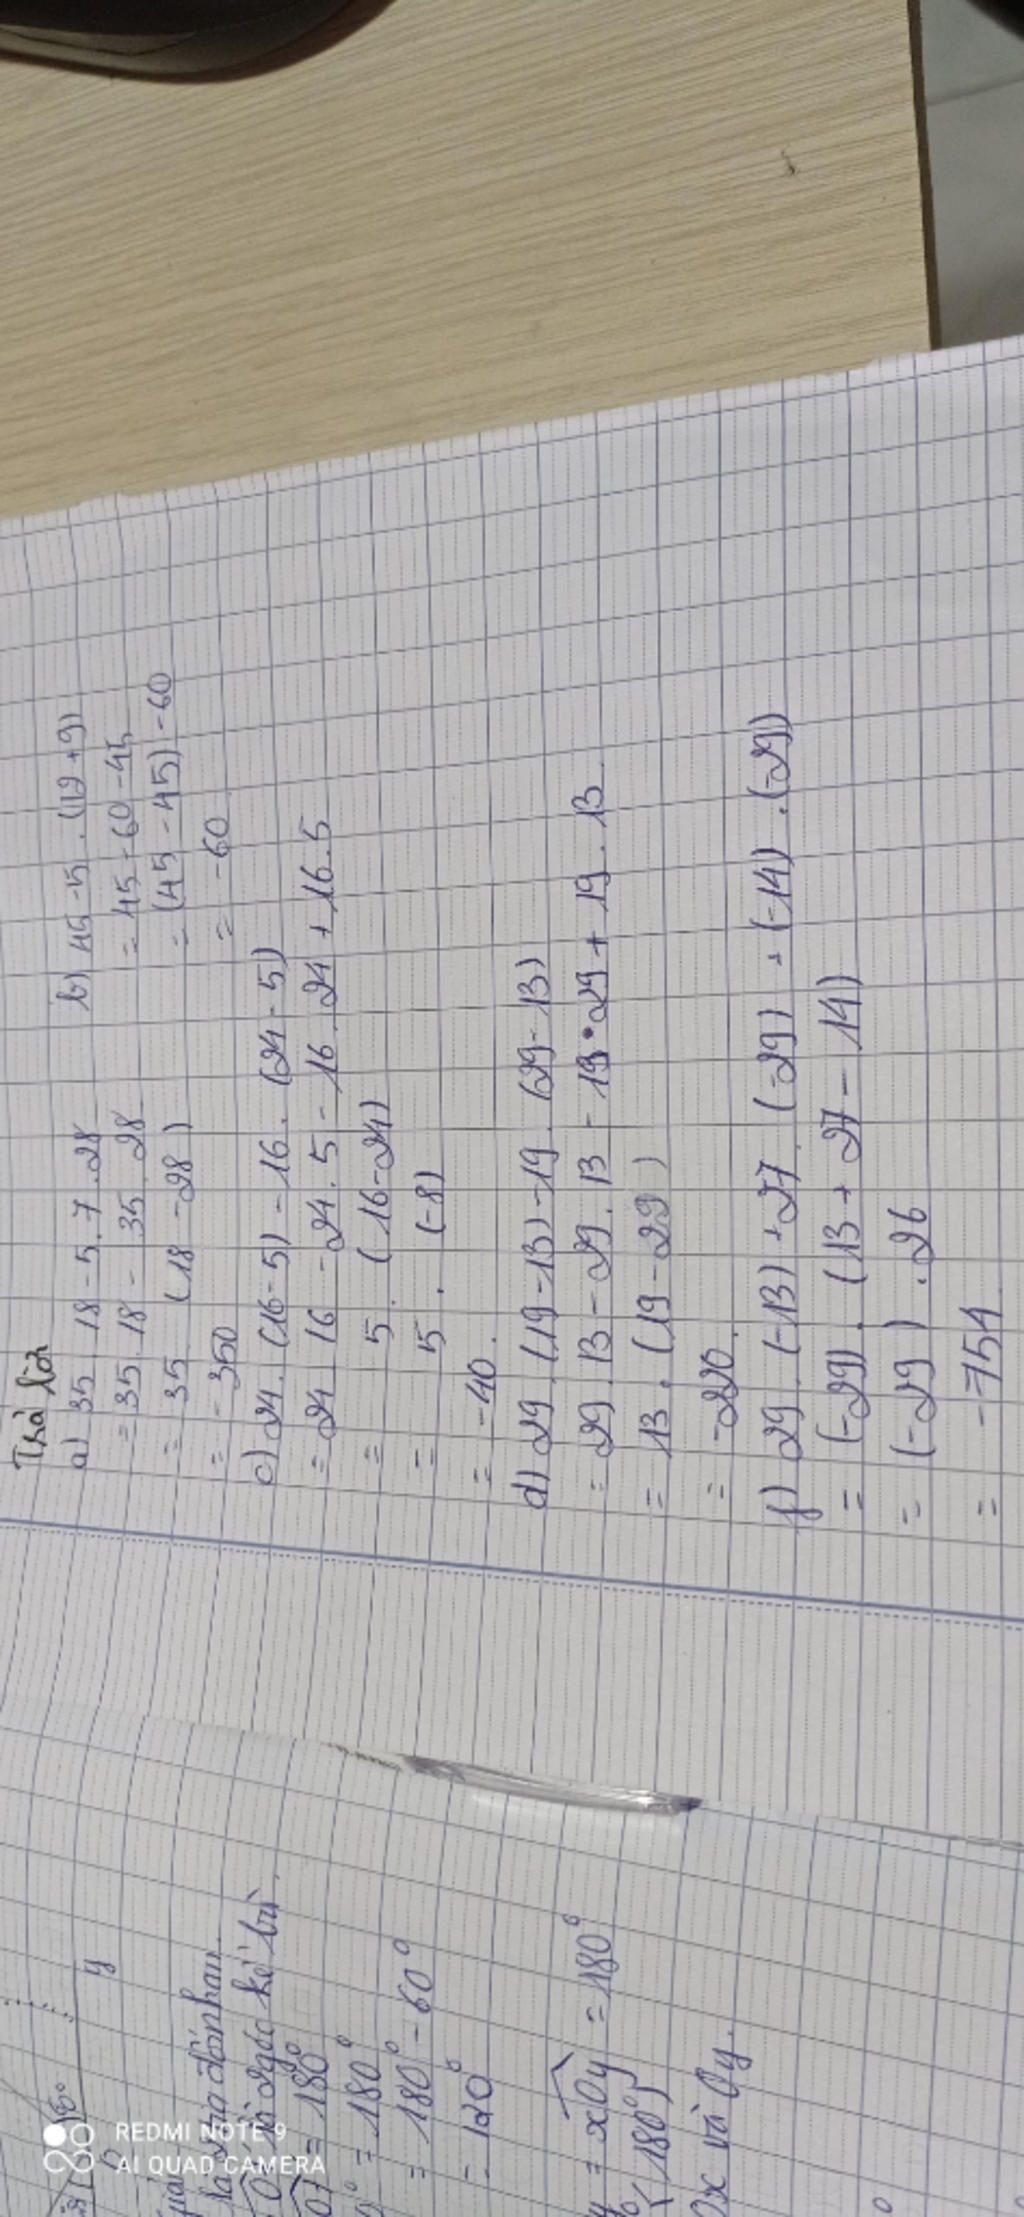 Trả lời
a) 35 . 18 - 5 . 7 . 28
= 35 . 18 - 35 . 28
= 35 (18 - 28)
= - 350
b) 45 - 5 . (12 + 9)
= 45 - 60 - 45
= (45 - 45) - 60
= - 60
c) 24 . (16 - 5) - 16 . (24 - 5)
= 24 . 16 - 24 . 5 - 16 . 24 + 16 . 5
= 5 . (16 - 24)
= 5 . (-8)
= - 40 .
d) 29 . (19 - 13) - 19 . (29 - 13)
= 29 . 13 - 29 . 13 - 19 . 29 + 19 . 13
= 13 . (19 - 29)
= - 220 .
f) 29 . (-13) + 27 . (-29) + (-14) . (-29)
= (-29) . (13 + 27 - 14)
= (-29) . 26
= - 754
y
kề bù
= 180°
= 180°
= 180° - 60°
= 120°
= xOy = 180°
(180°)
Ox và Oy.
REDMI NOTE 9
AI QUAD CAMERA